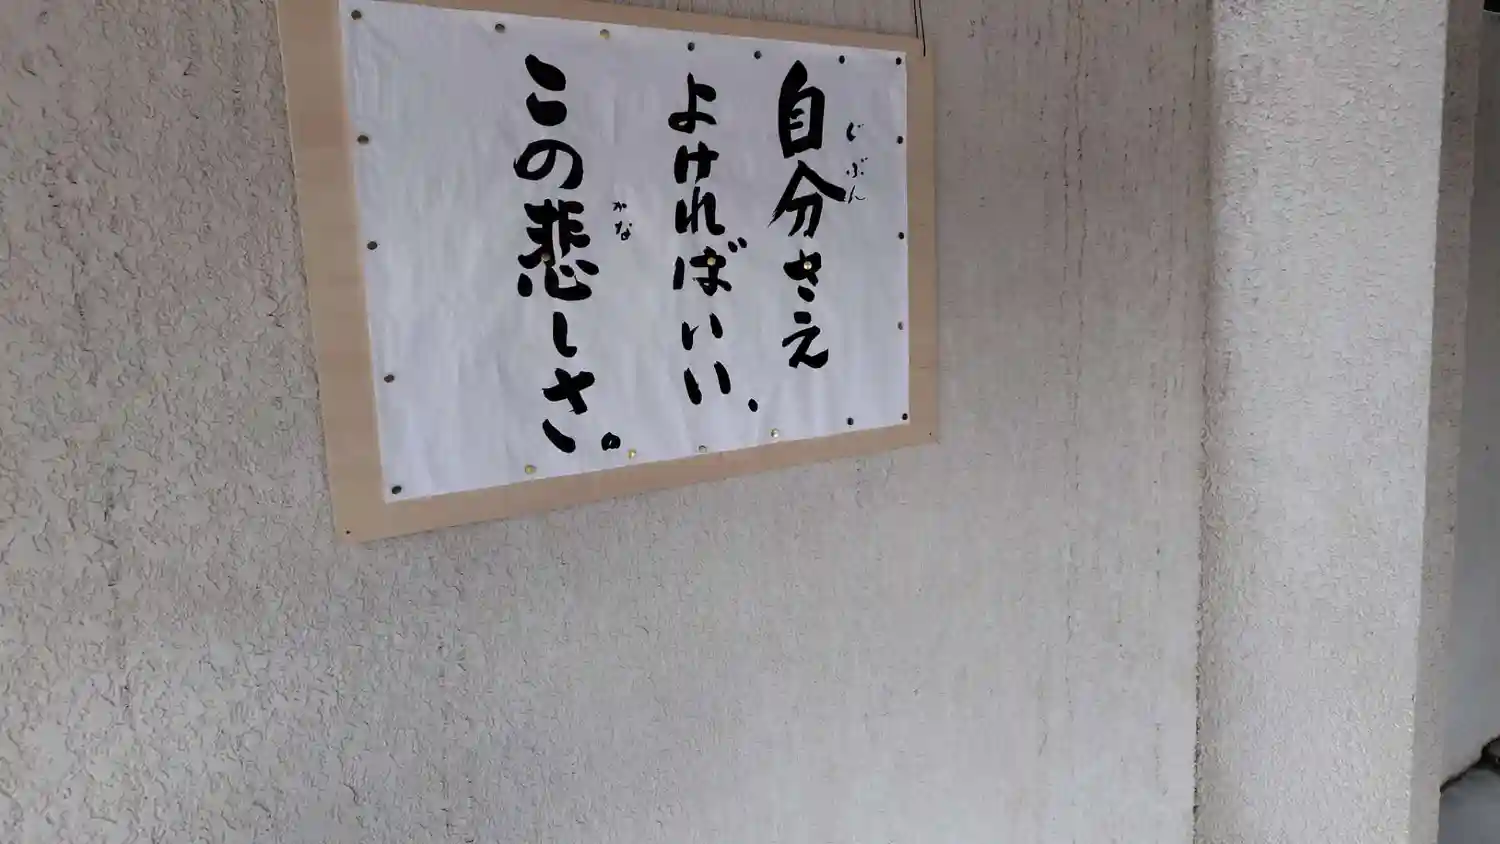 自分さえ
じぶん
よければいい、
この悲しさ。
かな